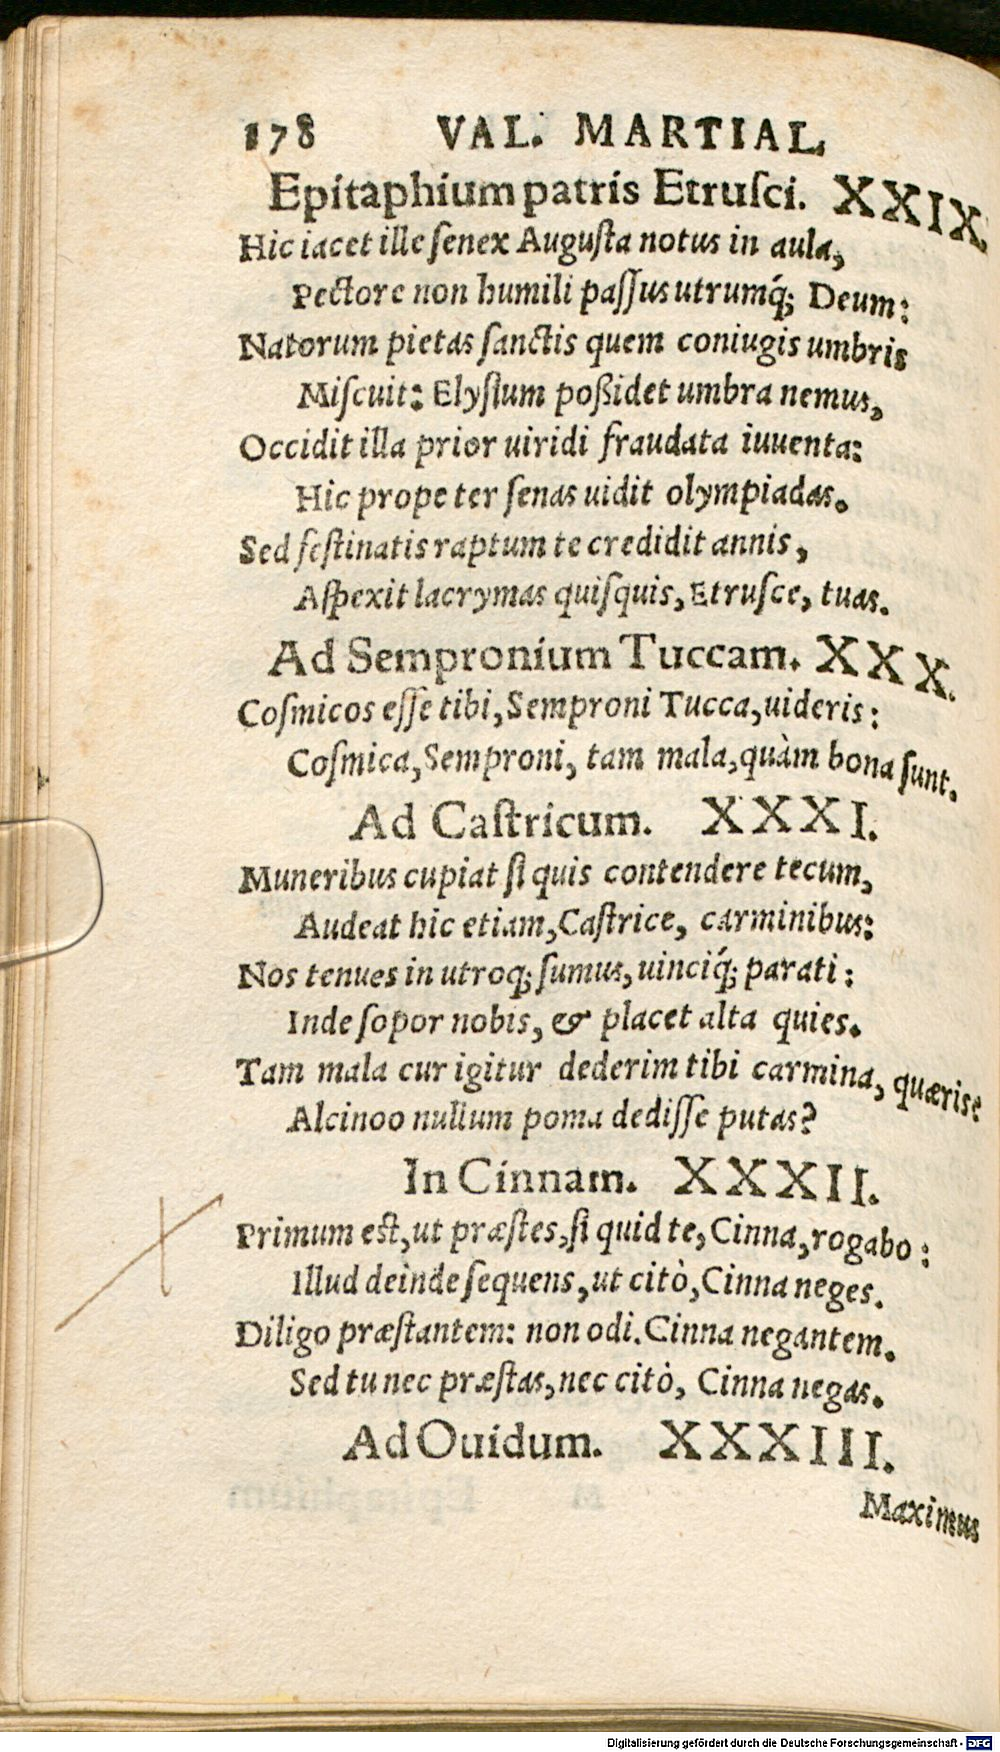 178 VAL. MARTIAL.
Epitaphium patris Etrusci. XXIX.
Hic iacet ille ſenex Auguſta notus in aula,
Pectore non humili paſſus utrumq́; Deum:
Natorum pietas ſanctis quem coniugis umbris
Miſcuit: Elyſium poßidet umbra nemus,
Occidit illa prior uiridi fraudata iuuenta:
Hic prope ter ſenas uidit olympiadas.
Sed feſtinatis raptum te credidit annis,
Aſpexit lacrymas quiſquis, Etruſce, tuas.
Ad Sempronium Tuccam. XXX.
Coſmicos eſſe tibi, Semproni Tucca, uideris:
Coſmica, Semproni, tam mala, quàm bona ſunt.
Ad Caſtricum. XXXI.
Muneribus cupiat ſi quis contendere tecum,
Audeat hic etiam, Caſtrice, carminibus:
Nos tenues in utroq; ſumus, uinciq́; parati:
Inde ſopor nobis, & placet alta quies.
Tam mala cur igitur dederim tibi carmina, quæris?
Alcinoo nullum poma dediſſe putas?
In Cinnam. XXXII.
Primum eſt, ut præſtes, ſi quid te, Cinna, rogabo:
Illud deinde ſequens, ut citò, Cinna neges.
Diligo præſtantem: non odi. Cinna negantem.
Sed tu nec præſtas, nec citò, Cinna negas.
Ad Ouidum. XXXIII.
Maximus
Digitalisierung gefördert durch die Deutsche Forschungsgemeinschaft - DFG